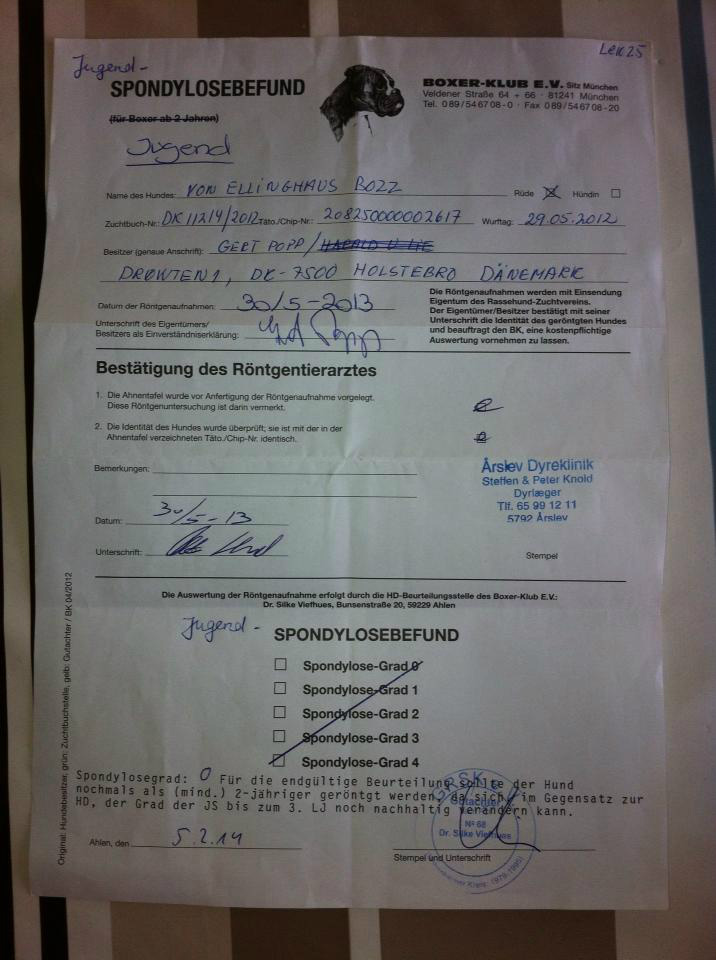 Jugend -
SPONDYLOSEBEFUND
(für Boxer ab 2 Jahren)
Jugend
BOXER-KLUB E.V. Sitz München
Veldener Straße 64 + 66 · 81241 München
Tel. 089/54 67 08-0 · Fax 089/54 67 08-20
Name des Hundes: VON ELLINGHAUS BOZZ Rüde X Hündin
Zuchtbuch-Nr.: DK11214/2012 Täto./Chip-Nr.: 208250000002617 Wurftag: 29.05.2012
Besitzer (genaue Anschrift): GERT POPP /
DRØWTEN 1, DK-7500 HOLSTEBRO DÄNEMARK
Datum der Röntgenaufnahmen: 30/5-2013
Unterschrift des Eigentümers/
Besitzers als Einverständniserklärung:
Die Röntgenaufnahmen werden mit Einsendung
Eigentum des Rassehund-Zuchtvereins.
Der Eigentümer/Besitzer bestätigt mit seiner
Unterschrift die Identität des geröngten Hundes
und beauftragt den BK, eine kostenpflichtige
Auswertung vornehmen zu lassen.
Bestätigung des Röntgentierarztes
1. Die Ahnentafel wurde vor Anfertigung der Röntgenaufnahme vorgelegt.
Diese Röntgenuntersuchung ist darin vermerkt.
2. Die Identität des Hundes wurde überprüft; sie ist mit der in der
Ahnentafel verzeichneten Täto./Chip-Nr. identisch.
Bemerkungen:
Årslev Dyreklinik
Steffen & Peter Knold
Dyrlæger
Tlf. 65 99 12 11
5792 Årslev
Datum: 30/5-13
Unterschrift:
Stempel
Die Auswertung der Röntgenaufnahme erfolgt durch die HD-Beurteilungsstelle des Boxer-Klub E.V.:
Dr. Silke Viefhues, Bunsenstraße 20, 59229 Ahlen
Jugend -
SPONDYLOSEBEFUND
Spondylose-Grad 0
Spondylose-Grad 1
Spondylose-Grad 2
Spondylose-Grad 3
Spondylose-Grad 4
Spondylosegrad: 0 Für die endgültige Beurteilung sollte der Hund
nochmals als (mind.) 2-jähriger geröngt werden, da sich im Gegensatz zur
HD, der Grad der JS bis zum 3. LJ noch nachhaltig verändern kann.
Gutachter
Nº 68
Dr. Silke Viefhues
Ahlen, den 5.2.14
Stempel und Unterschrift
Original: Hundebesitzer, grün: Zuchtbuchstelle, gelb: Gutachter / BK 04/2012